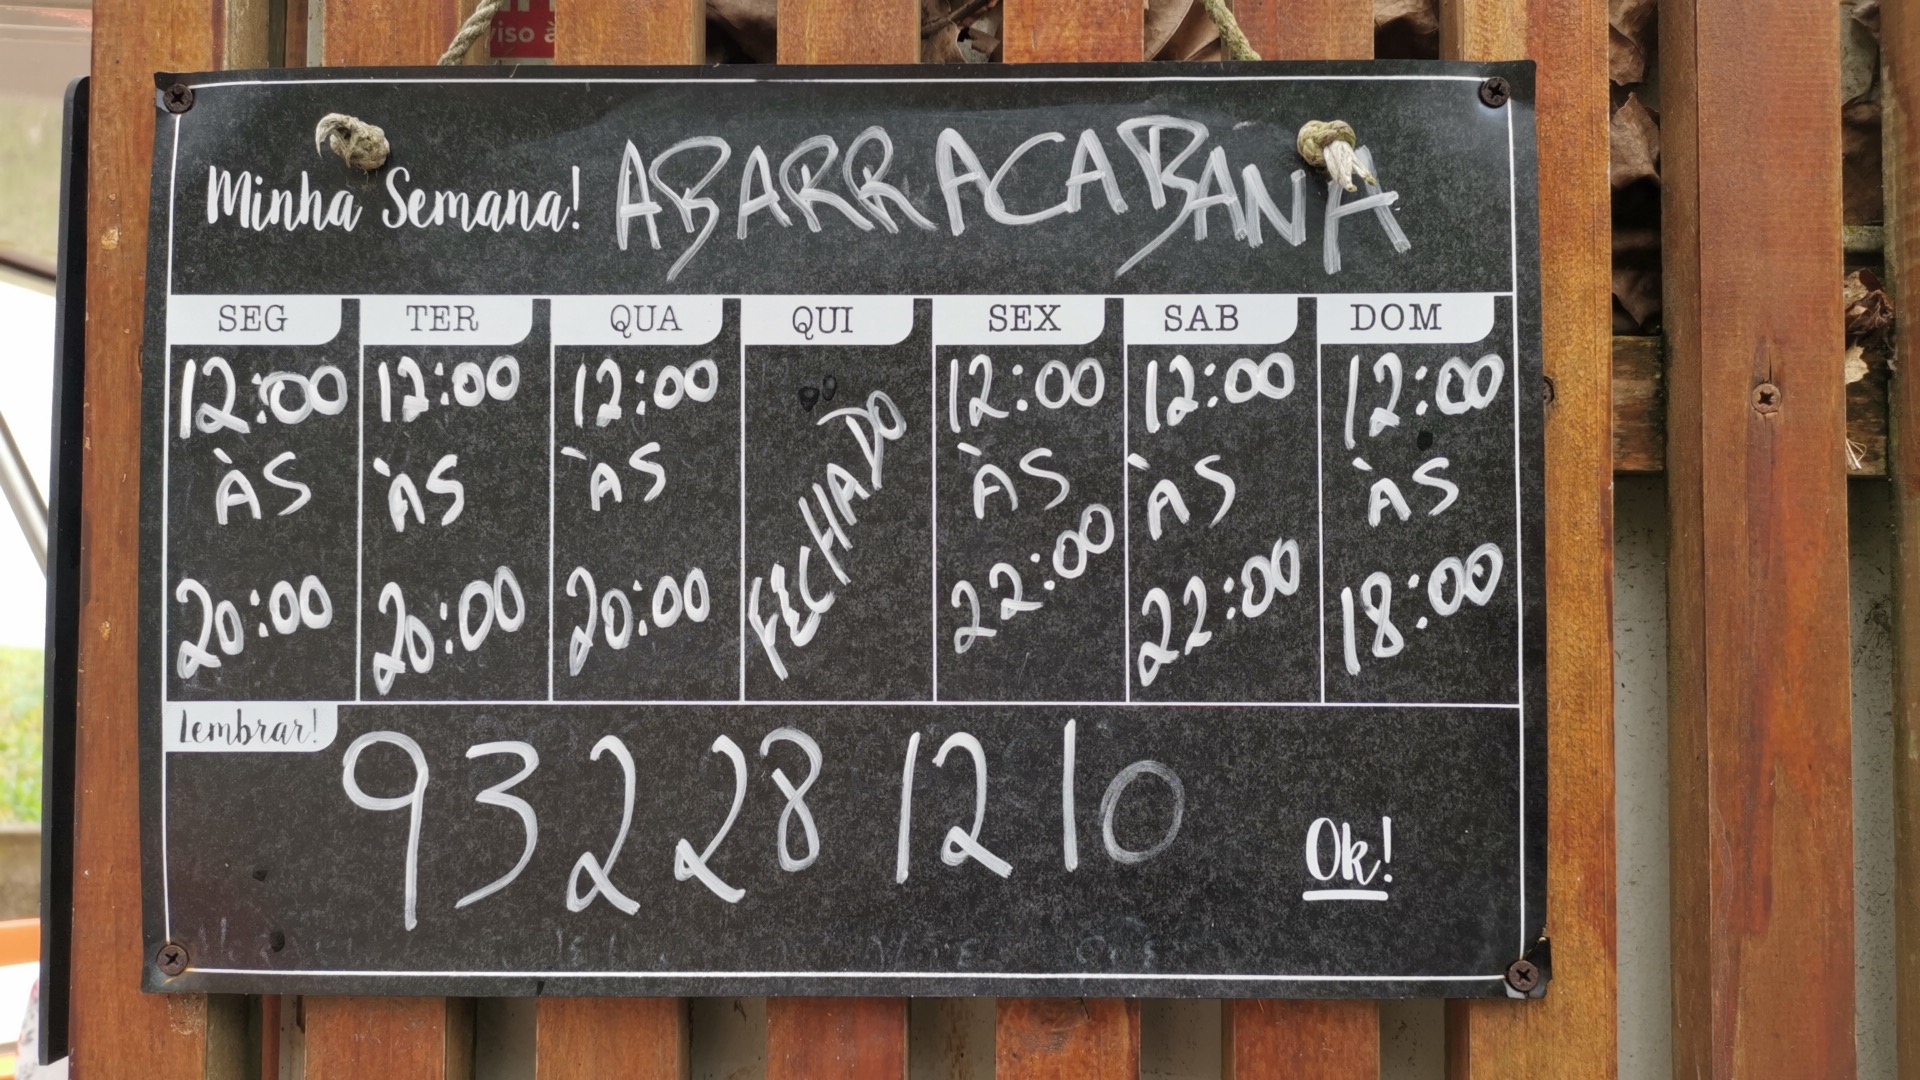 viso à
Minha Semana! ABARRACABANA
SEG TER QUA QUI SEX SAB DOM
12:00 12:00 12:00 FECHADO 12:00 12:00 12:00
ÀS ÀS ÀS ÀS ÀS ÀS
20:00 20:00 20:00 22:00 22:00 18:00
Lembrar!
93228 12 10
Ok!